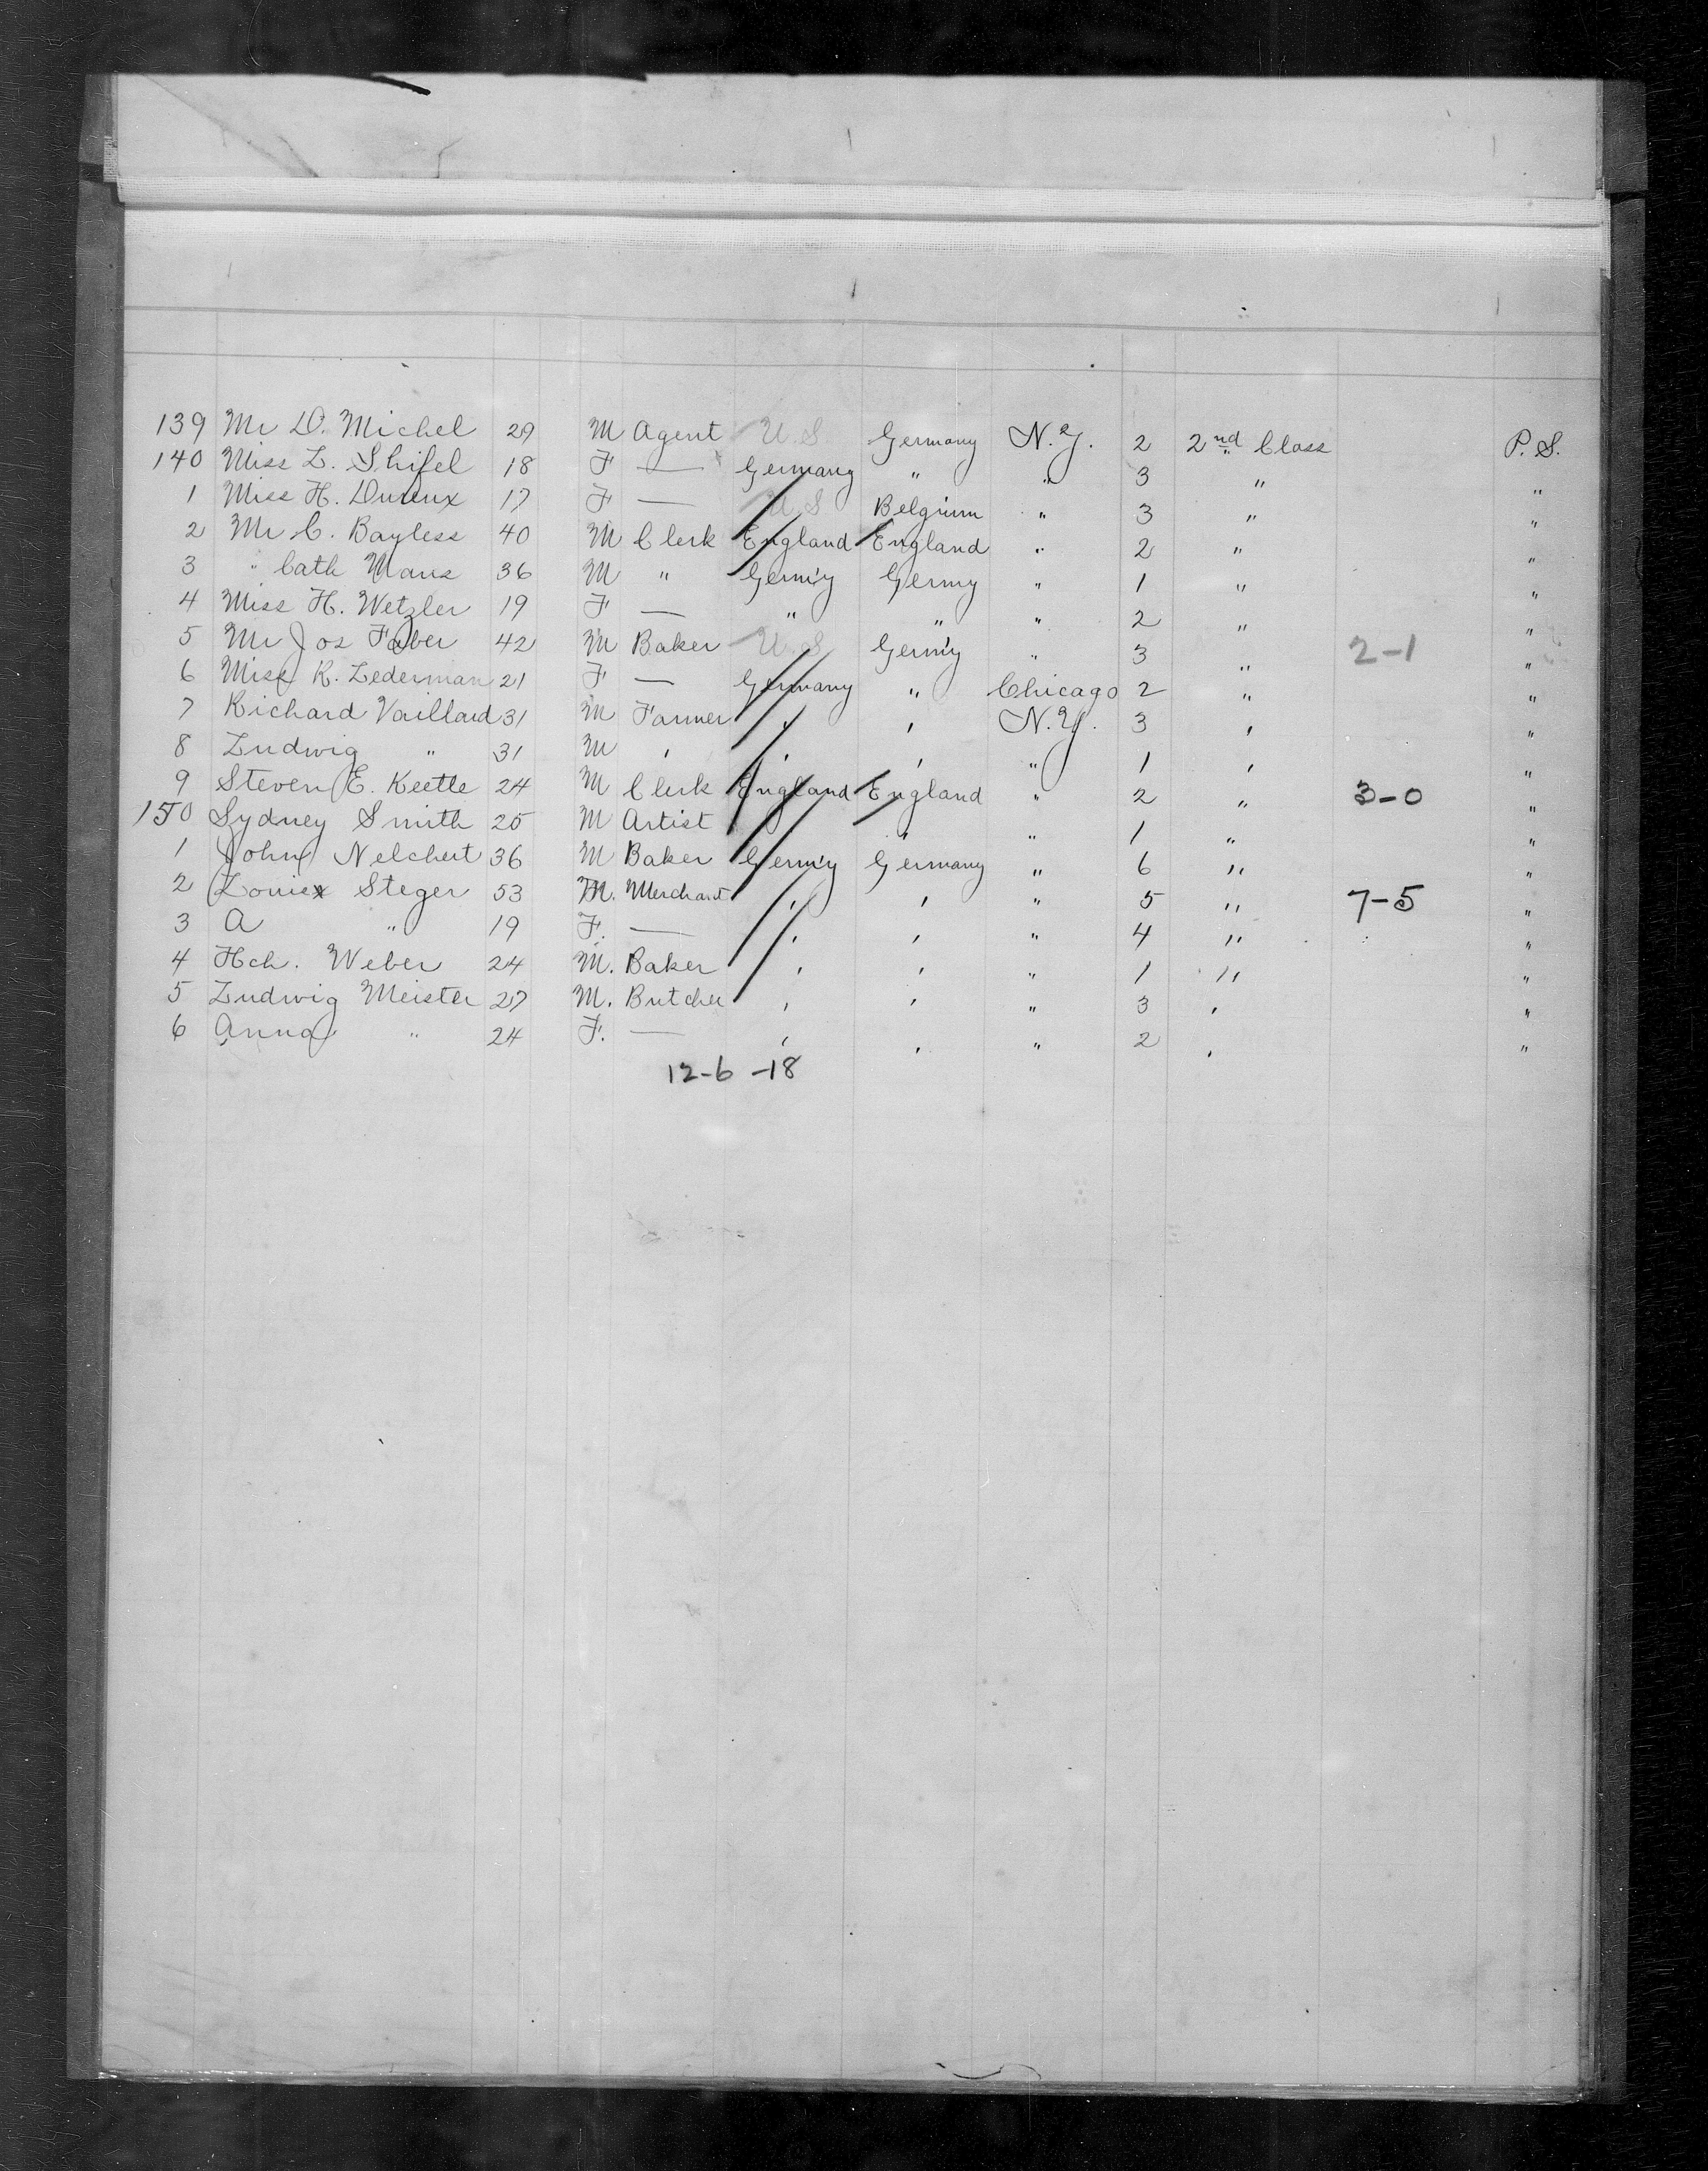 139 Mr D. Michel 29 M Agent U.S Germany N.Y. 2 2nd Class P.S.
140 Miss L. Shifel 18 F — Germany " " 3 " "
1 Miss H. 17 F — U S Belgium " 3 " "
2 Mr C. Bayless 40 M Clerk England England " 2 " "
3 " Cath Mans 36 M " Germ'y Germy " 1 " "
4 Miss H. Wetzler 19 F — " " " 2 " "
5 Mr Jos Faber 42 M Baker U.S Germ'y " 3 " 2-1 "
6 Miss R. Lederman 21 F — Germany " Chicago 2 " "
7 Richard Vaillard 31 M Farmer " " N.Y. 3 " "
8 Ludwig " 31 M " " " " 1 " "
9 Steven E. Keetle 24 M Clerk England England " 2 " 3-0 "
150 Sydney Smith 25 M Artist " " " 1 " "
1 John Nelchert 36 M Baker Germ'y Germany " 6 " "
2 Louiex Steger 53 M. Merchant " " " 5 " 7-5 "
3 A " 19 F. — " " " 4 " "
4 Hch. Weber 24 M. Baker " " " 1 " "
5 Ludwig Meister 27 M. Butcher " " " 3 " "
6 Anna " 24 F. — " " " 2 " "
12-6 -18